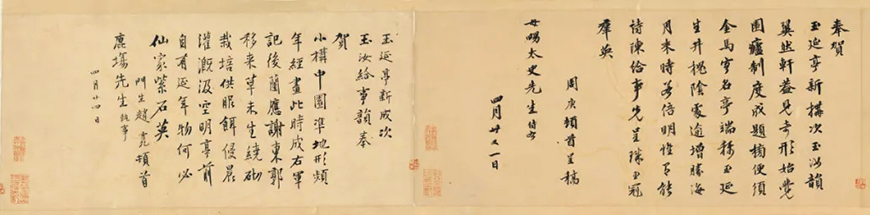 奉賀
玉延亭新構次玉汝韻
翼然軒蓋見奇形始覺
園廬制度成題榜便須
金馬客名亭端稱玉延
生井槐陰處逾增勝海
月來時若倍明性不能
詩陳給事先呈珠玉冠
羣英
周庚頓首呈稿
太史先生侍者
四月廿又一日
玉延亭新成次
玉汝給事韻奉
賀
小構中園準地形頻
年經畫此時成右軍
記後蘭應謝東郭
移來草未生繞砌
栽培供服餌侵晨
灌漑汲空明亭前
自有延年物何必
仙家紫石英
門生趙寬頓首
先生執事
四月廿四日